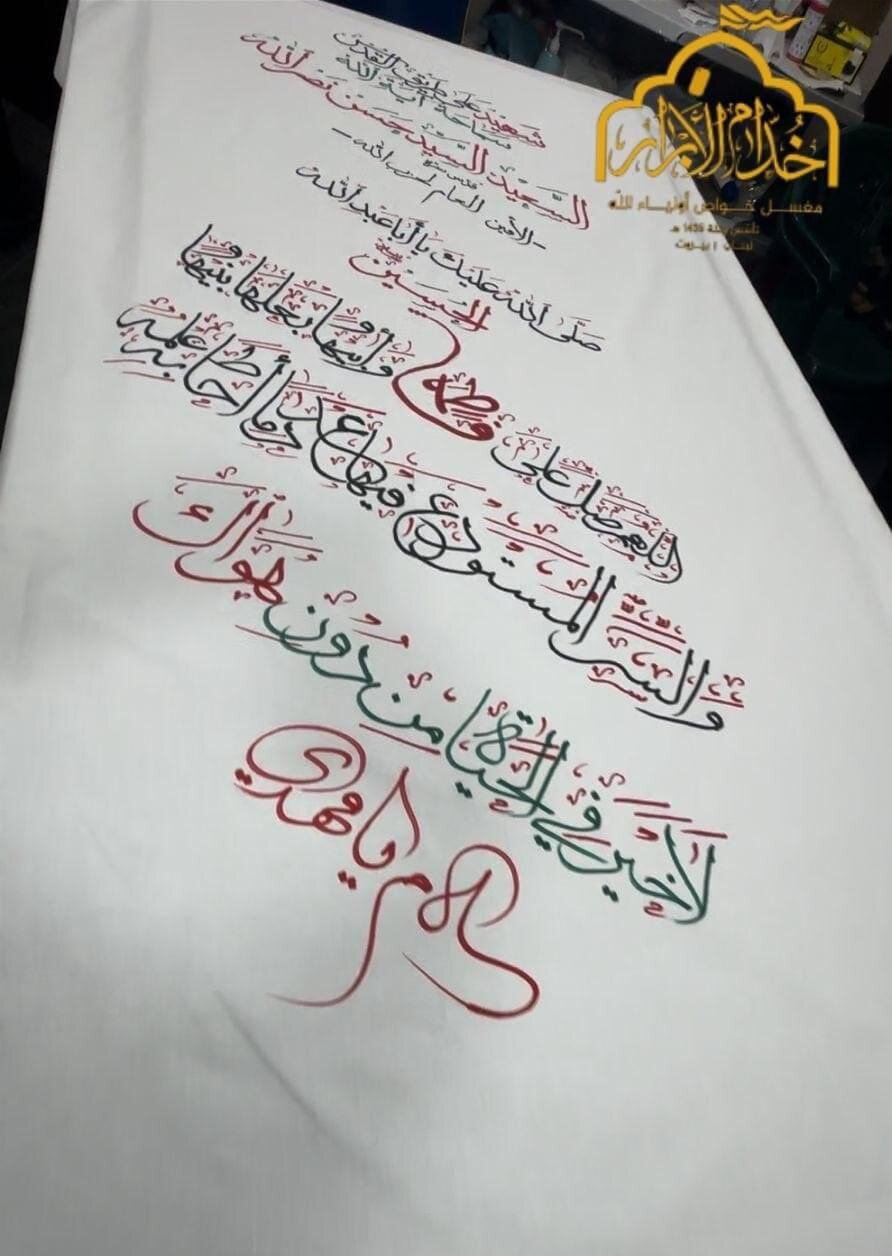 شهيد على طريق القدس
سماحة آية الله
السعيد السيد حسن نصر الله
قدس سره
-الأمين العام لحزب الله-
صلى الله عليك يا أبا عبد الله
الحسين
اللهم صل على فاطمة وأبيها وبعلها وبنيها
والسر المستودع فيها عدد ما أحاط به علمك
لا خير في الحياة من دون طواك
يا مهدي
خدام الأبرار
مغسل خواص أولياء الله
تأسس سنة 1435 هـ
لبنان | بيروت